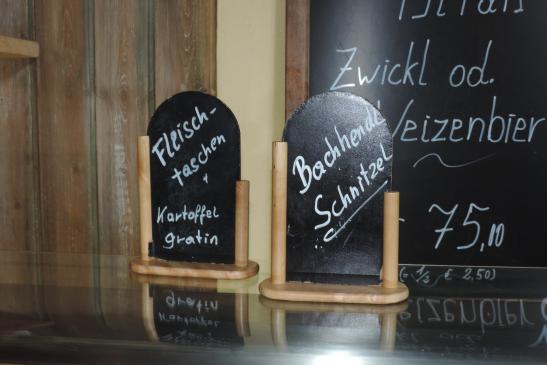 Fleisch-
taschen
+
Kartoffel
gratin
Bachhendl
Schnitzel
Zwickl od.
Weizenbier
75,10
(G. 1/3, € 2,50)